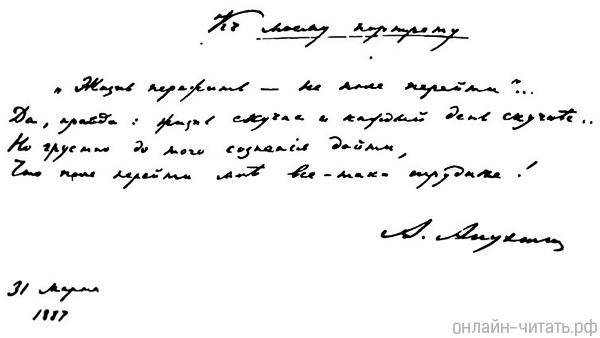 Къ моему портрету
„Жизнь пережить — не поле перейти“...
Да, правда: жизнь скучна и каждый день скучнѣе..
Но грустно до того сознанія дойти,
Что поле перейти мнѣ все-таки труднѣе!
А. Апухтин
31 Марта
1887
онлайн-читать.рф